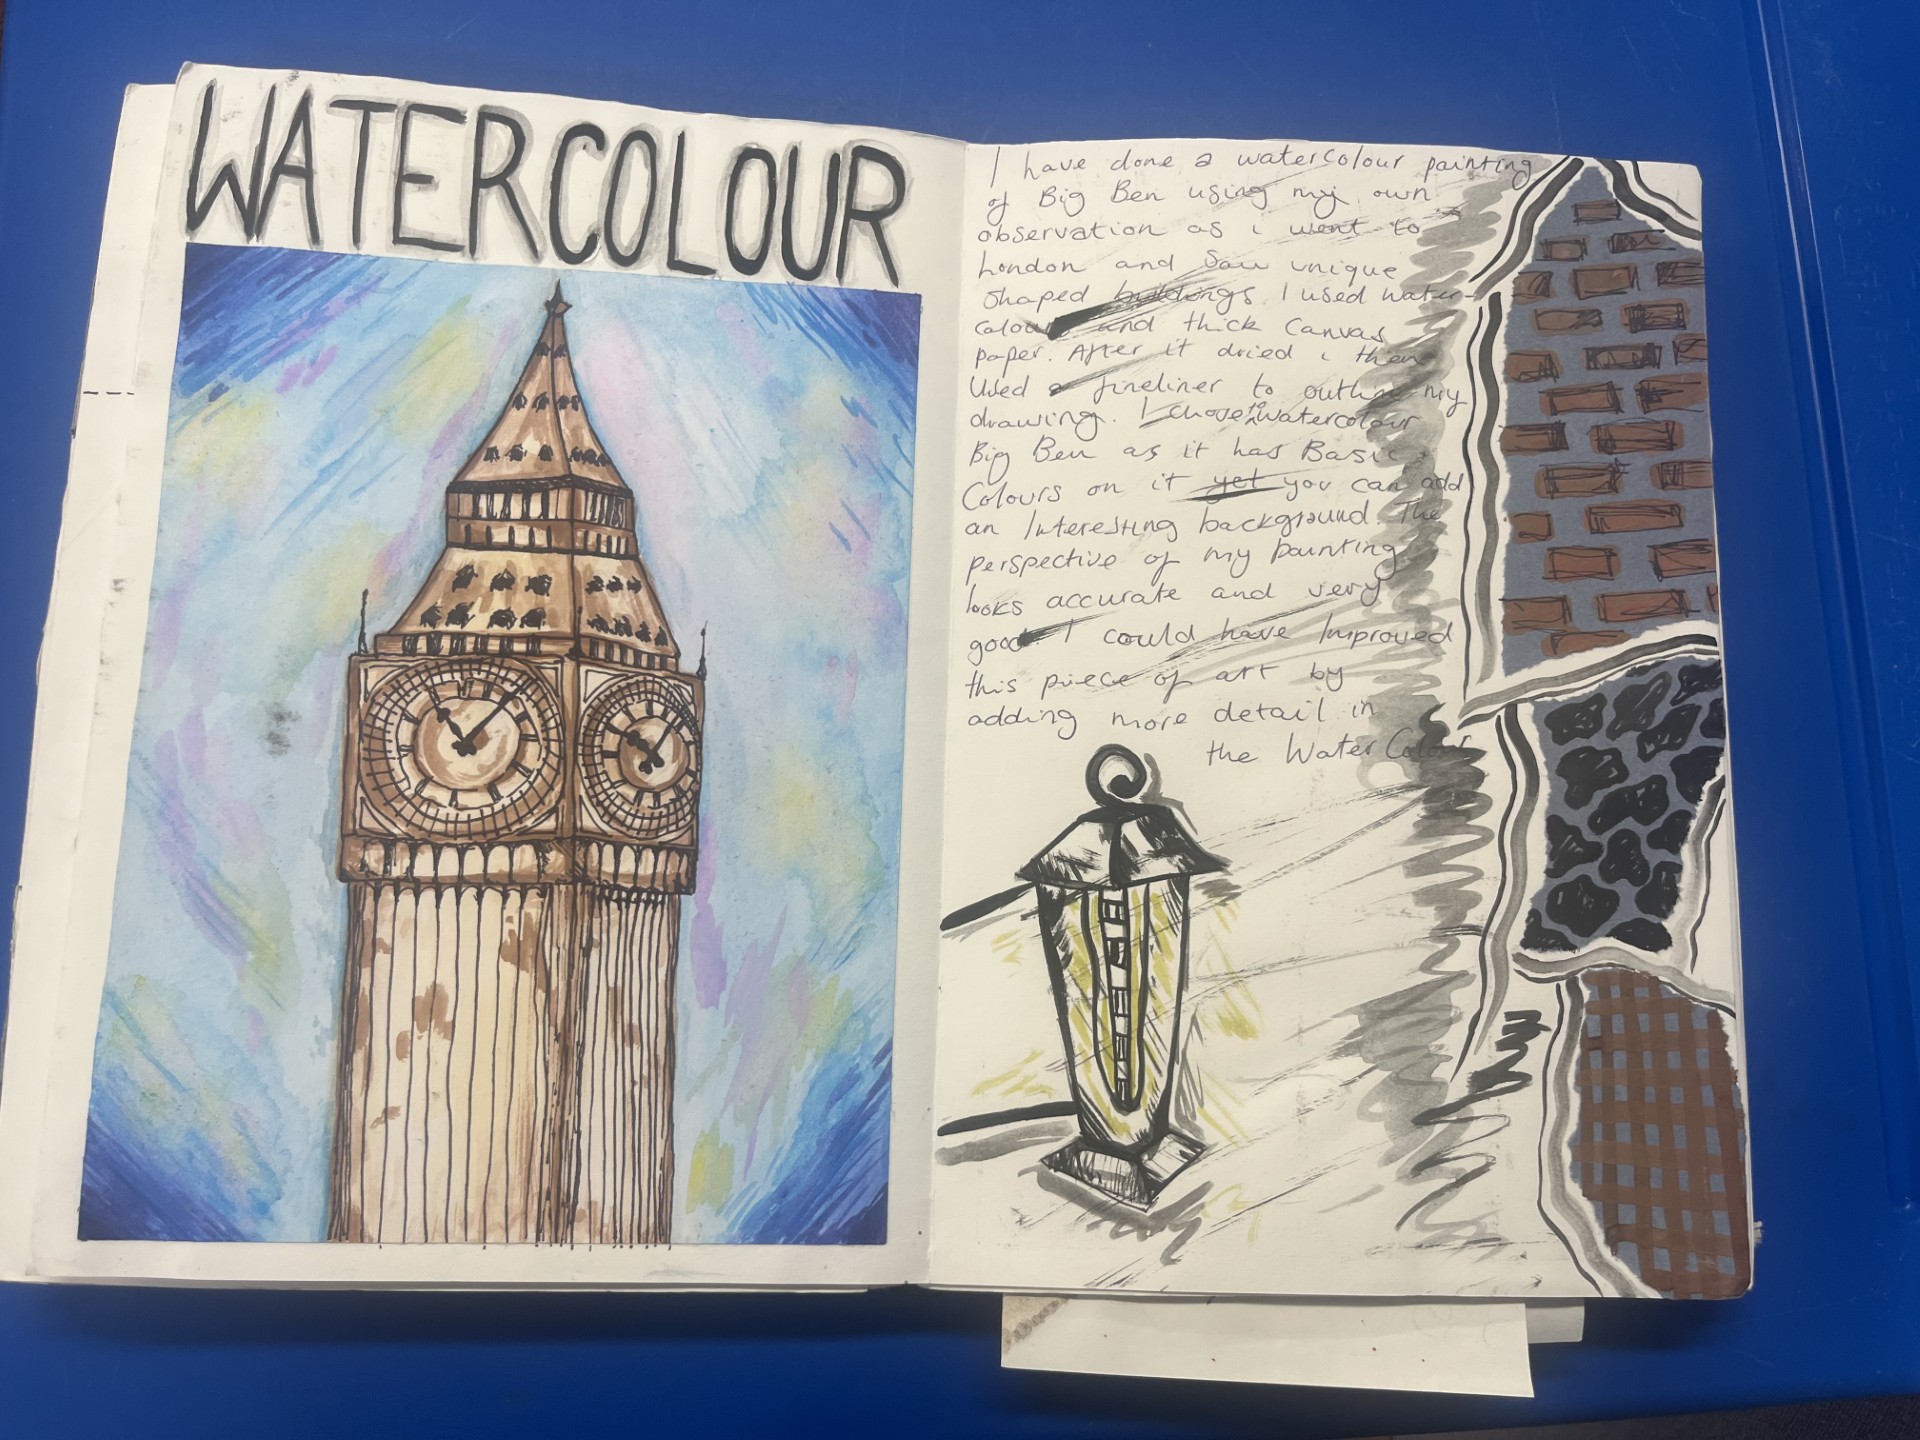 WATERCOLOUR
I have done a watercolour painting
of Big Ben using my own
observation as i went to
London and Saw unique
shaped buildings. I used water-
colour and thick canvas
paper. After it dried i then
Used a fineliner to outline my
drawing. I chose to watercolour
Big Ben as it has Basic
Colours on it yet you can add
an Interesting background. The
perspective of my painting
looks accurate and very
good. I could have Improved
this piece of art by
adding more detail in
the Water Colour